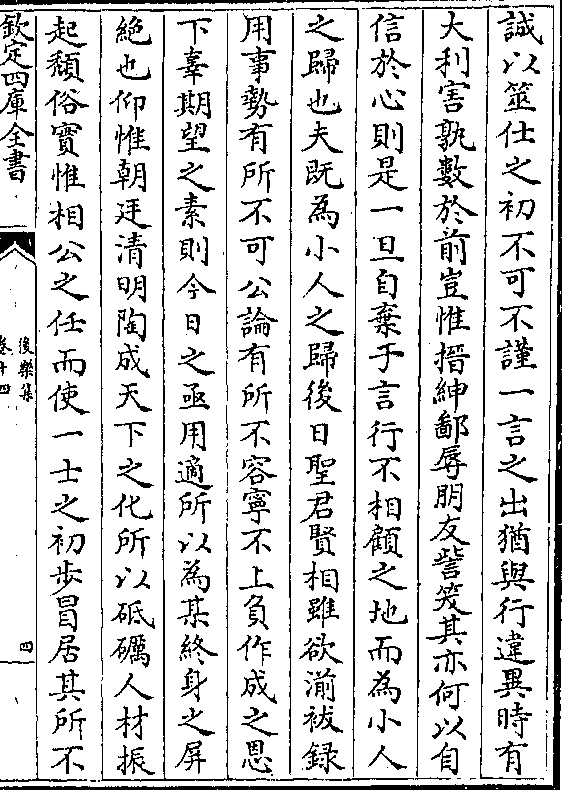 誠以筮仕之初不可不謹一言之出猶與行違異時有
大利害孰數於前豈惟搢紳鄙辱朋友訾笑其亦何以自
信於心則是一旦自棄于言行不相顧之地而為小人
之歸也夫既為小人之歸後日聖君賢相雖欲湔祓錄
用事勢有所不可公論有所不容寧不上負作成之恩
下辜期望之素則今日之亟用適所以為某終身之屏
絶也仰惟朝廷清明陶成天下之化所以砥礪人材振
起頽俗實惟相公之任而使一士之初步冒居其所不
欽定四庫全書
後樂集
卷十四
四